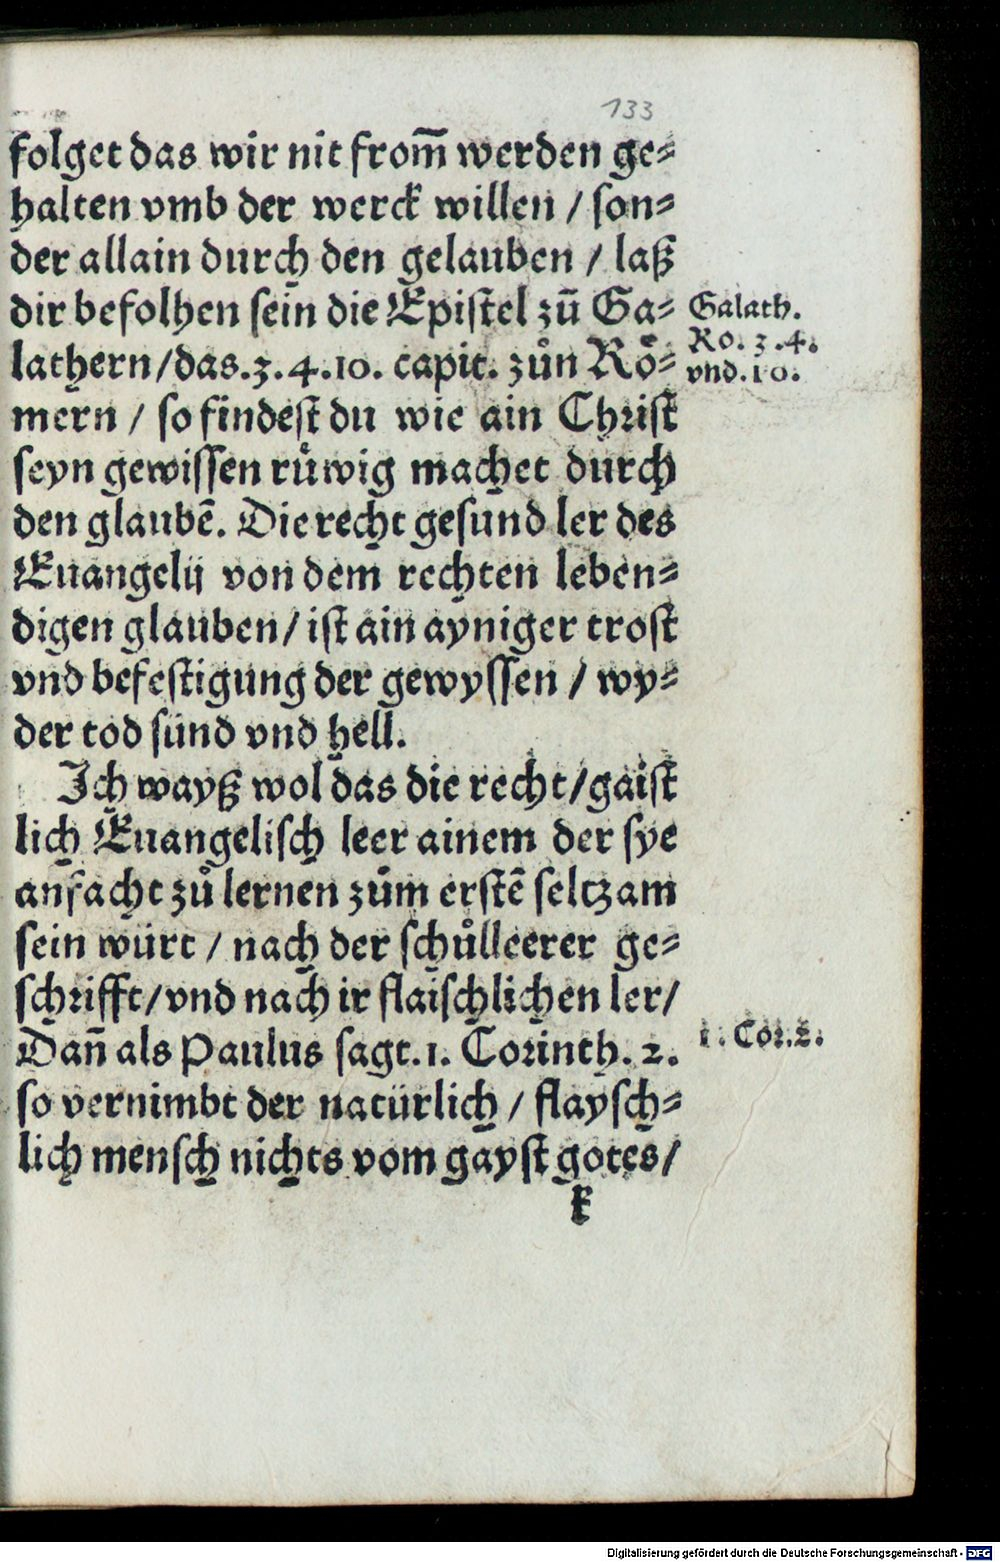 133
folget das wir nit from̄ werden ge⸗
halten vmb der werck willen / son⸗
der allain durch den gelauben / laß
dir befolhen sein die Epistel zū Ga⸗
Galath.
lathern / das.3.4.10. capit. zůn Rö⸗
Ro. 3 .4.
vnd.10.
mern / so findest du wie ain Christ
seyn gewissen rüwig machet durch
den glaubē. Die recht gesund ler des
Euangelij von dem rechten leben⸗
digen glauben / ist ain ayniger trost
vnd befestigung der gewyssen / wy⸗
der tod sünd vnd hell.
Ich wayß wol das die recht / gaist
lich Euangelisch leer ainem der sye
anfacht zů lernen zům erstē seltzam
sein würt / nach der schůlleerer ge⸗
schrifft / vnd nach ir flaischlichen ler /
Dan̄ als Paulus sagt.1. Corinth. 2.
1. Cor.2.
so vernimbt der natürlich / flaysch⸗
lich mensch nichts vom gayst gotes /
k
Digitalisierung gefördert durch die Deutsche Forschungsgemeinschaft - DFG